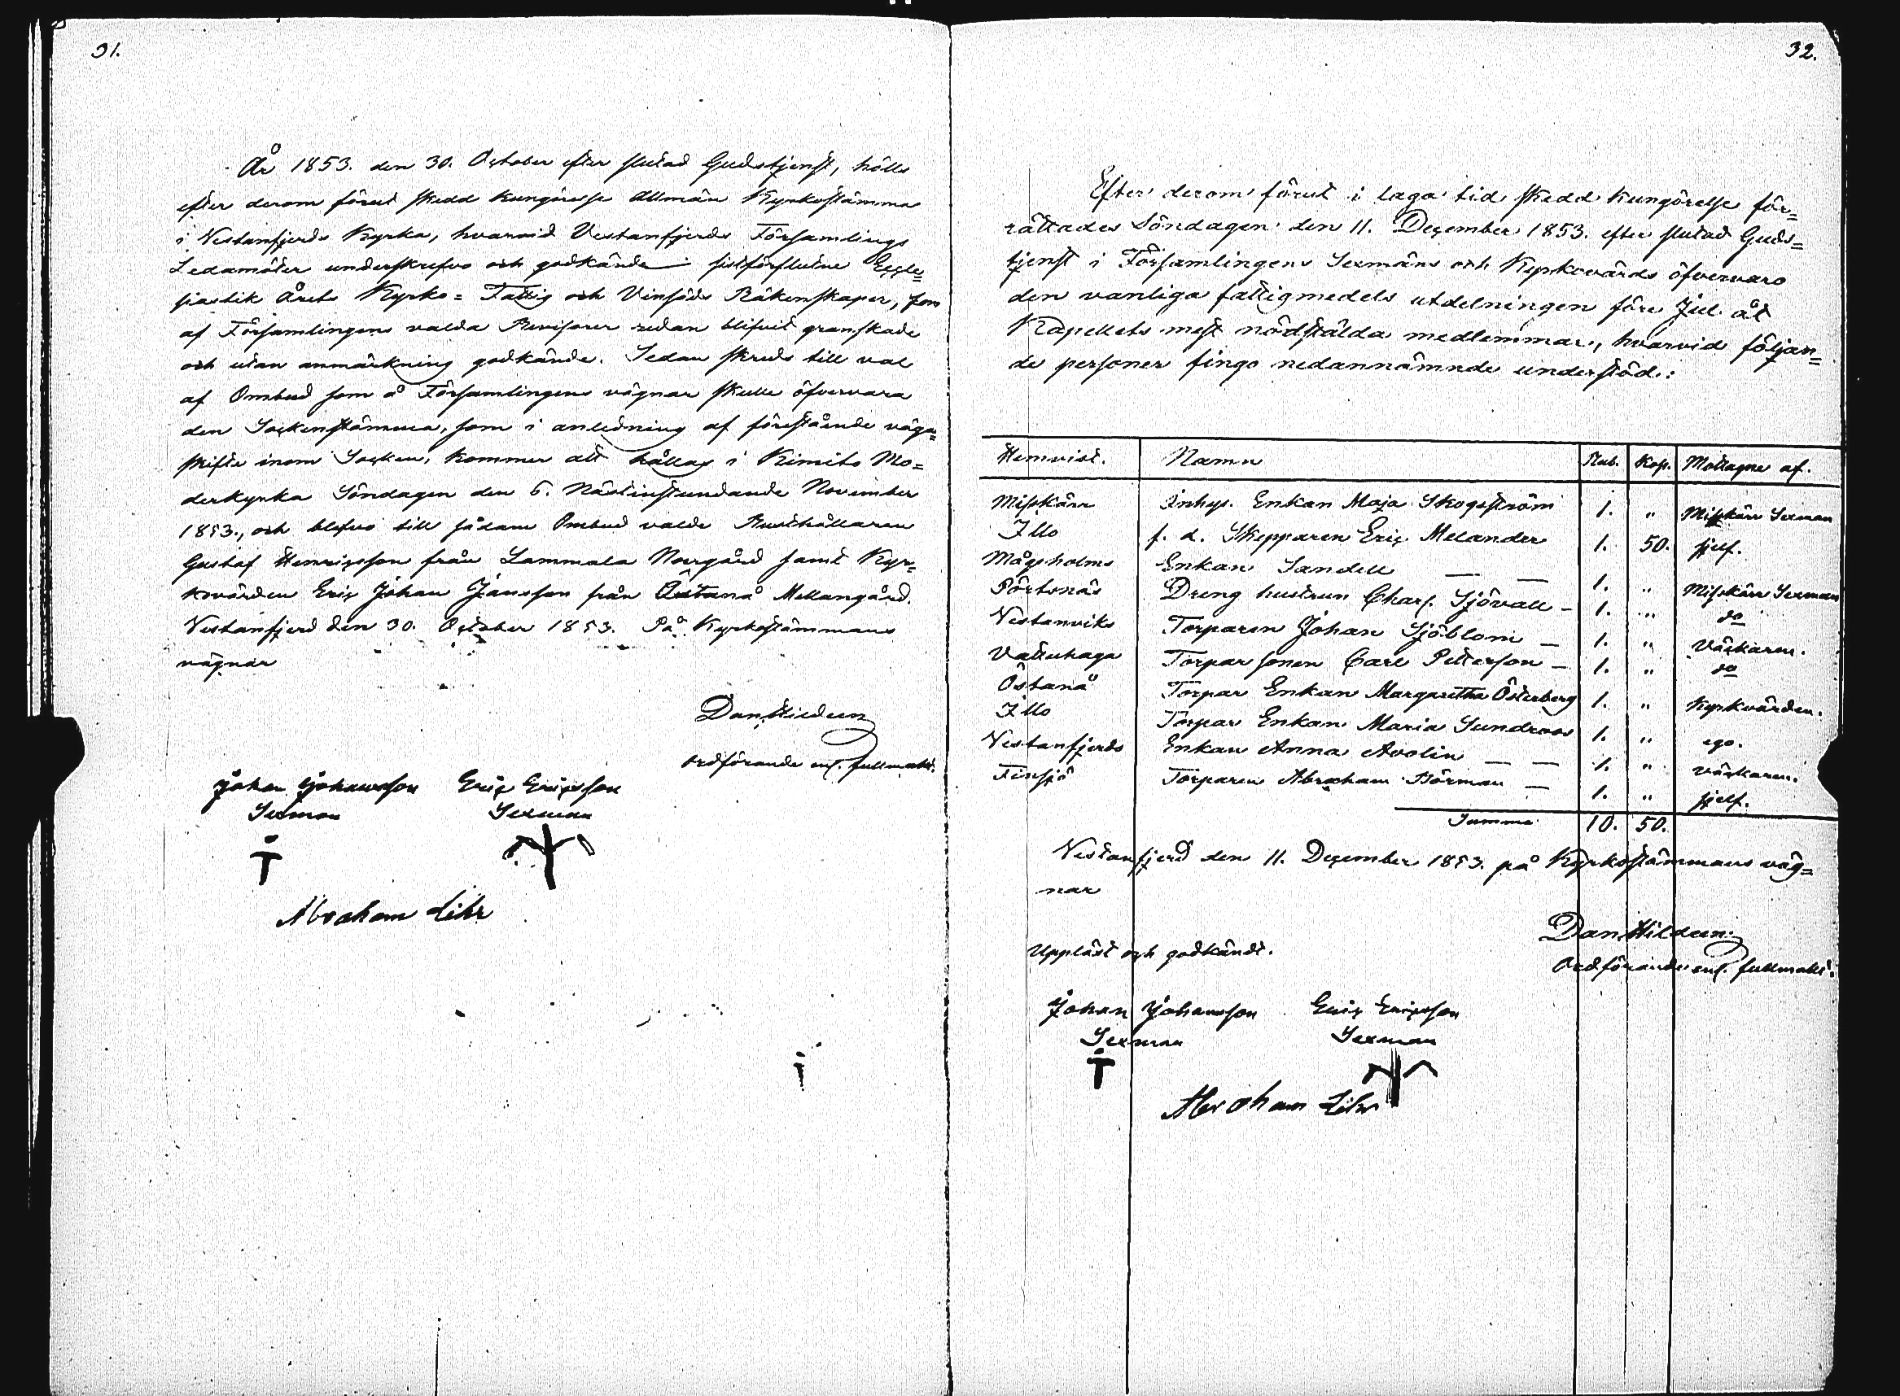 31.
År 1853. den 30. October efter slutad Gudstjenst, hölls
efter derom förut skedd kungörelse Allmän Kyrkostämma
i Vestanfjerds Kyrka, hvarvid Vestanfjerds Församlings
Ledamöter underskrefvo och godkände sistförflutne Eccle=
siastik Årets Kyrko= Fattig och Vinsäds Räkenskaper, som
af Församlingens valda Revisorer redan blifvit granskade
och utan anmärkning godkände. Sedan skreds till val
af Ombud som å Församlingens vägnar skulle öfvervara
den Sockenstämma, som i anledning af förestående väga=
skifte inom Socken, kommer att hållas i Kimito Mo=
derkyrka Söndagen den 6. nästinstundande November
1853., och blefvo till sådane Ombud valde Rusthållaren
Gustaf Henricsson från Lammala Norrgård samt Kyr=
kovärden Eric Johan Jansson från Östanå Mellangård.
Vestanfjerd den 30. October 1853. På Kyrkostämmans
vägnar
Dan. Hildeen
ordförande enl. fullmakt.
Johan Johansson Eric Ericsson
Sexman Sexman
Abraham Lihr
32.
Efter derom förut i laga tid skedd kungörelse för=
rättades Söndagen den 11. December 1853. efter slutad Guds=
tjenst i Församlingens Sexmäns och Kyrkovärds öfvervaro
den vanliga fattigmedels utdelningen före Jul åt
Kapellets mest nödstälda medlemmar, hvarvid följan=
de personer fingo nedannämnde understöd.:
Hemvist. Namn Rub. Kop. Mottagne af.
Misskärr Inhys. Enkan Maja Skogström 1. " Misskärr Sexman
Illo f. d. Skepparen Eric Melander 1. 50. sjelf.
Mågsholms Enkan Sandell — — 1. " Misskärr Sexman
Pörtsnäs Dreng hustrun Charl. Sjövall – 1. " do
Vestanviks Torparen Johan Sjöblom — 1. " Väckaren.
Vattuhaga Torpar sonen Carl Petterson – 1. " do
Östanå Torpar Enkan Margaretha Österberg 1. " Kyrkvärden.
Illo Torpar Enkan Maria Sundroos 1. " ego.
Vestanfjerds Enkan Anna Avolin — — 1. " väckaren.
Finsjö Torparen Abraham Börman — 1. " sjelf.
Summa 10. 50.
Vestanfjerd den 11. December 1853. på Kyrkostämmans väg=
nar
Dan. Hildeen.
Ordförande enl. fullmakt.
Uppläst och godkändt.
Johan Johansson Eric Ericsson
Sexman Sexman
Abraham Lihr